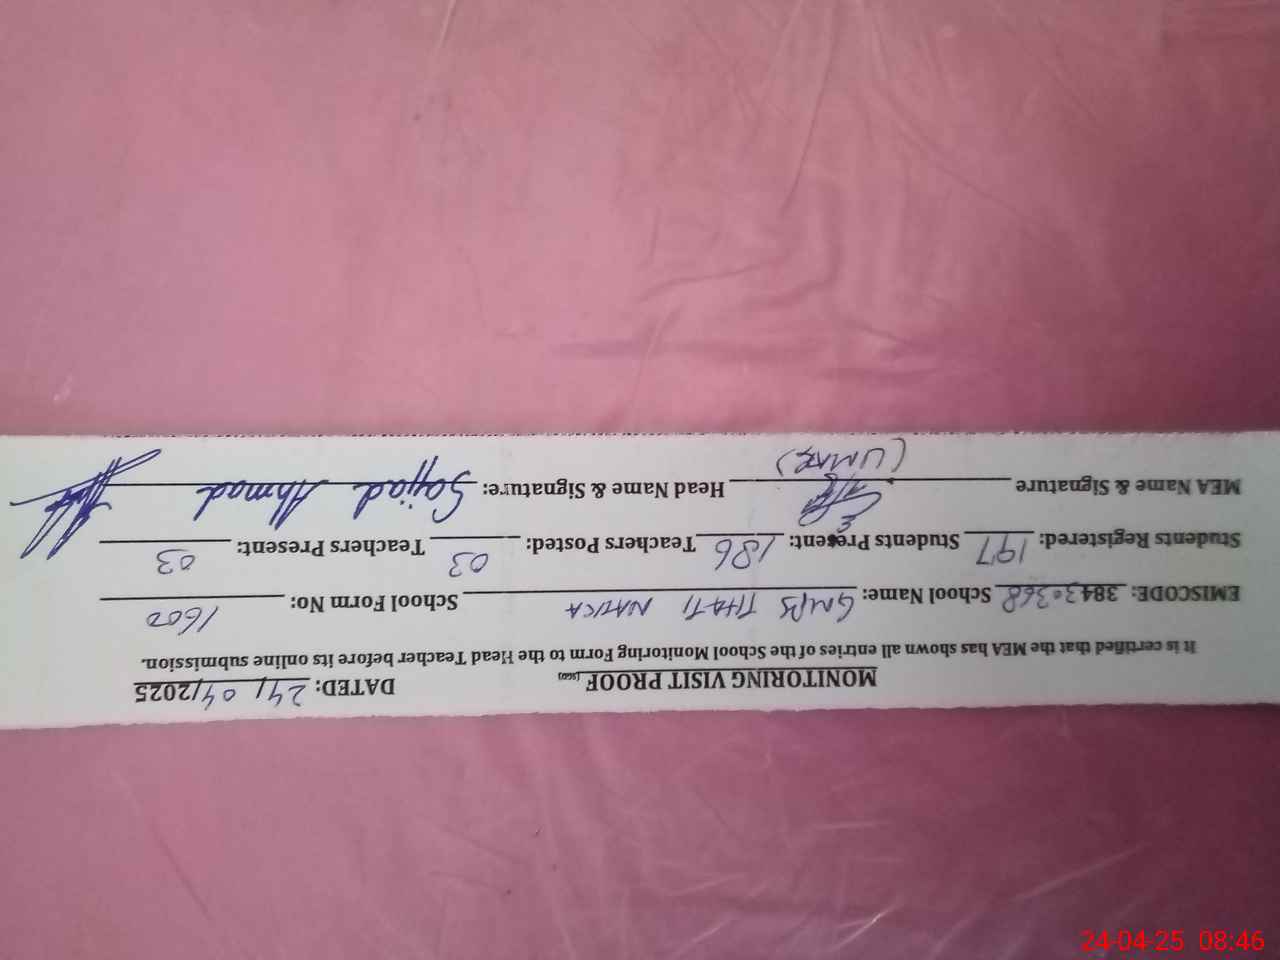 MONITORING VISIT PROOF (SGD) DATED: 24/04/2025
It is certified that the MEA has shown all entries of the School Monitoring Form to the Head Teacher before its online submission.
EMISCODE: 38430368 School Name: GMPS THATI NATICA School Form No: 1600
Students Registered: 197 Students Present: 186 Teachers Posted: 03 Teachers Present: 03
MEA Name & Signature Head Name & Signature: Sajjad Ahmad
(UMAR)
24-04-25 08:46